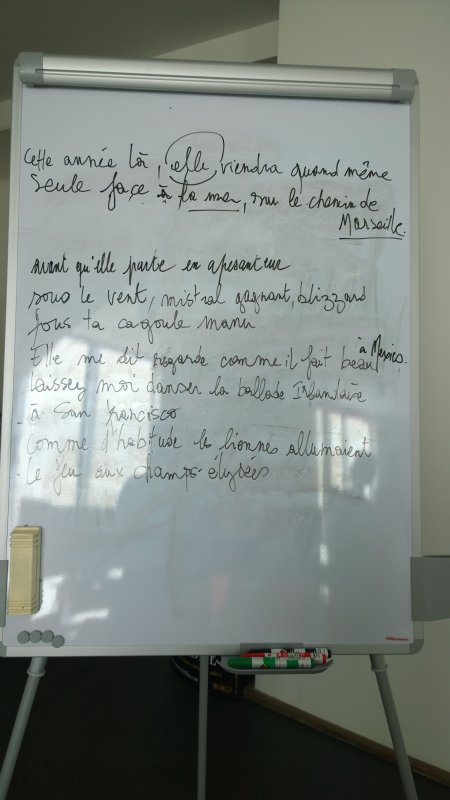 Cette année là, elle, viendra quand même
Seule face à la mer, sur le chemin de
Marseille.
Avant qu'elle parte en apesanteur
sous le vent, mistral gagnant, blizzard
fous ta cagoule manu
Elle me dit regarde comme il fait beau à Mexico.
Laissez moi danser la ballade Irlandaise
à San Francisco
Comme d'habitude les lionnes allumaient
le feu aux champs-élysées